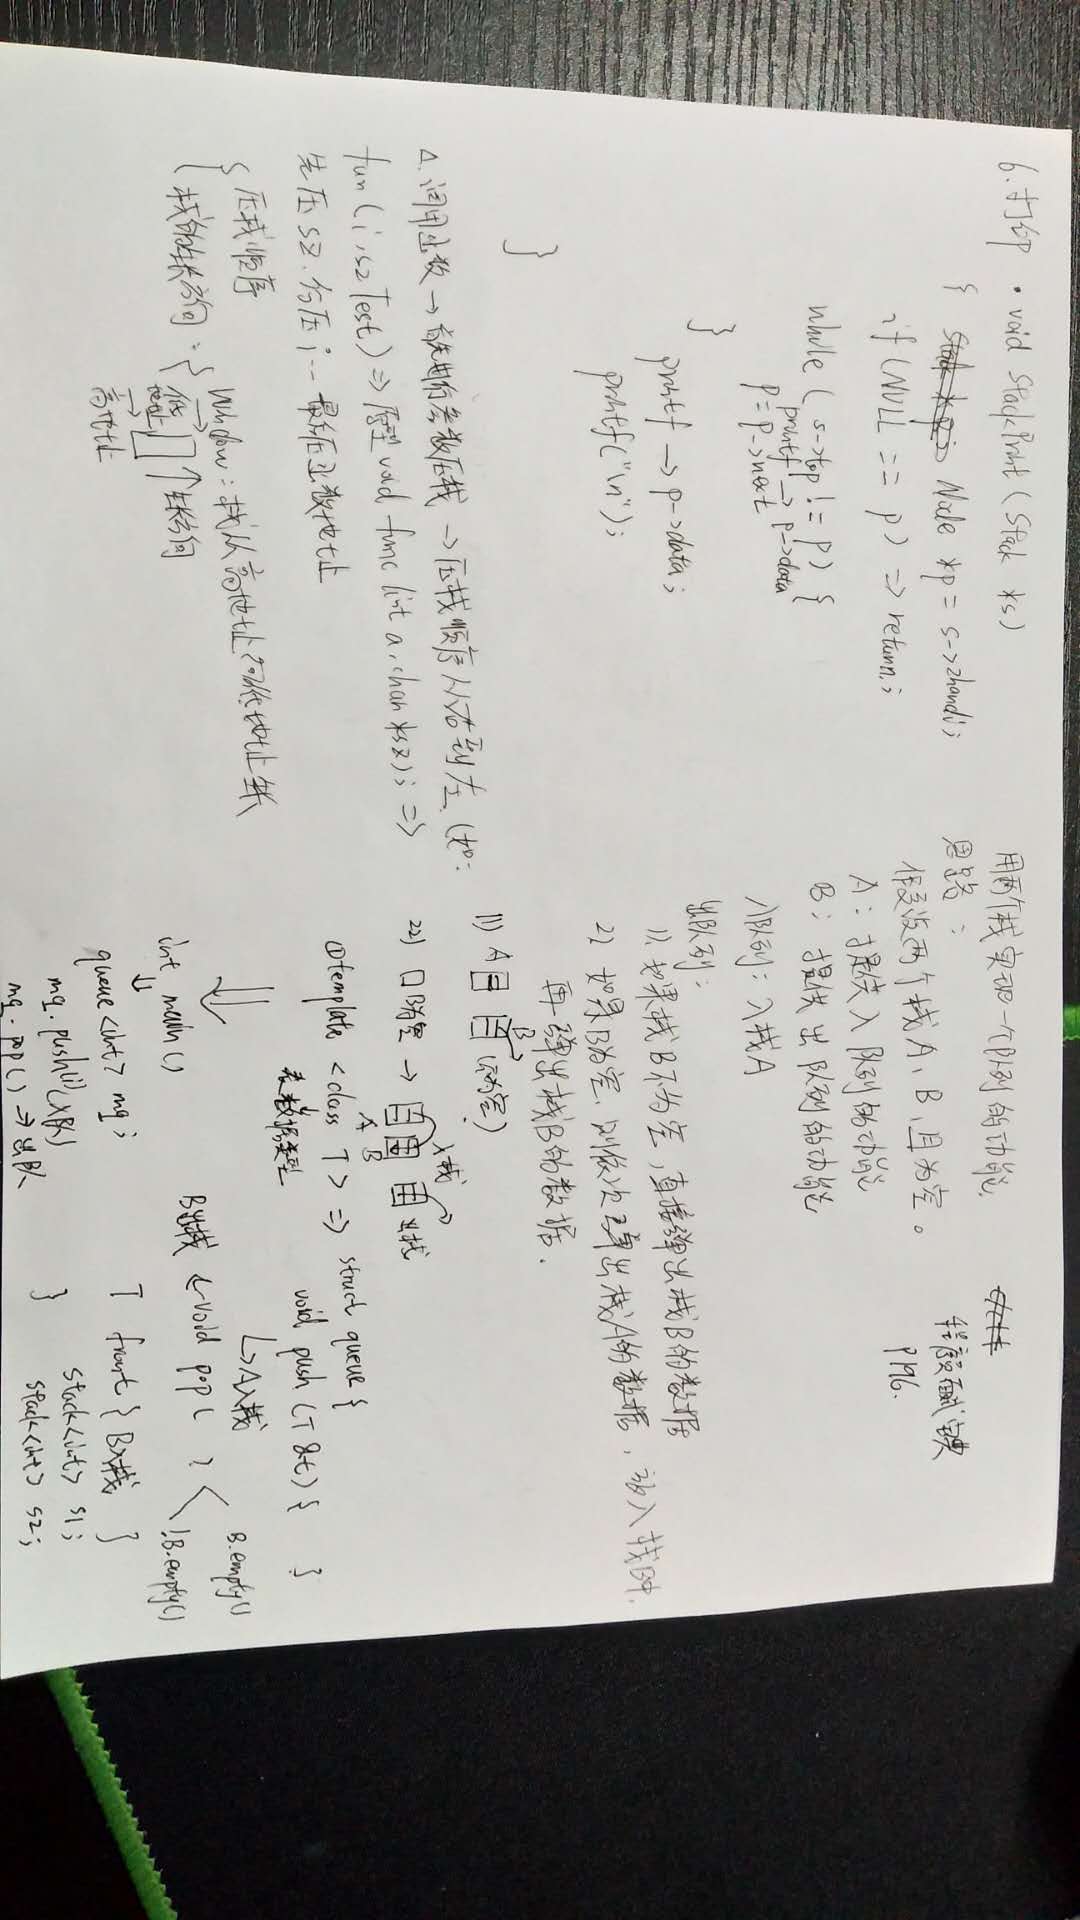 6.打印 · void StackPrint (Stack *s)
{ Node *p = s->zhandi;
if (NULL == p) => return;
while ( s->top != p) {
printf → p->data
p = p->next
}
printf → p->data;
printf("\n");
}
△.调用函数 → 首先进行参数压栈 → 压栈顺序从右到左 (如:
fun (i, szTest) => 原型 void func (int a, char *sz); =>
先压 sz. 后压 i … 最后压函数地址
{ 压栈顺序
栈的生长方向: { Window: 栈从高地址向低地址生长
低地址 ↑生长方向
高地址
用两个栈实现一个队列的功能.
思路:
假设两个栈 A、B, 且为空。
A: 提供入队列的功能
B: 提供出队列的功能
入队列: 入栈A
出队列:
1). 如果栈B不为空, 直接弹出栈B的数据
2) 如果B为空. 则依次弹出栈A的数据, 放入栈B中.
再弹出栈B的数据.
B
11) A (不为空)
入栈
22) B为空 → 出栈
A B
①template <class T> => struct queue {
表数据类型
void push (T &t) { }
↳A入栈
B.empty()
B出栈 ← void pop ( )
!B.empty()
T front { B入栈 }
stack<int> s1;
stack<int> s2;
}
int main ()
↓
queue <int> mq ;
mq. push(i) (入队)
mq. pop() → 出队
程序员面试宝典
P196.